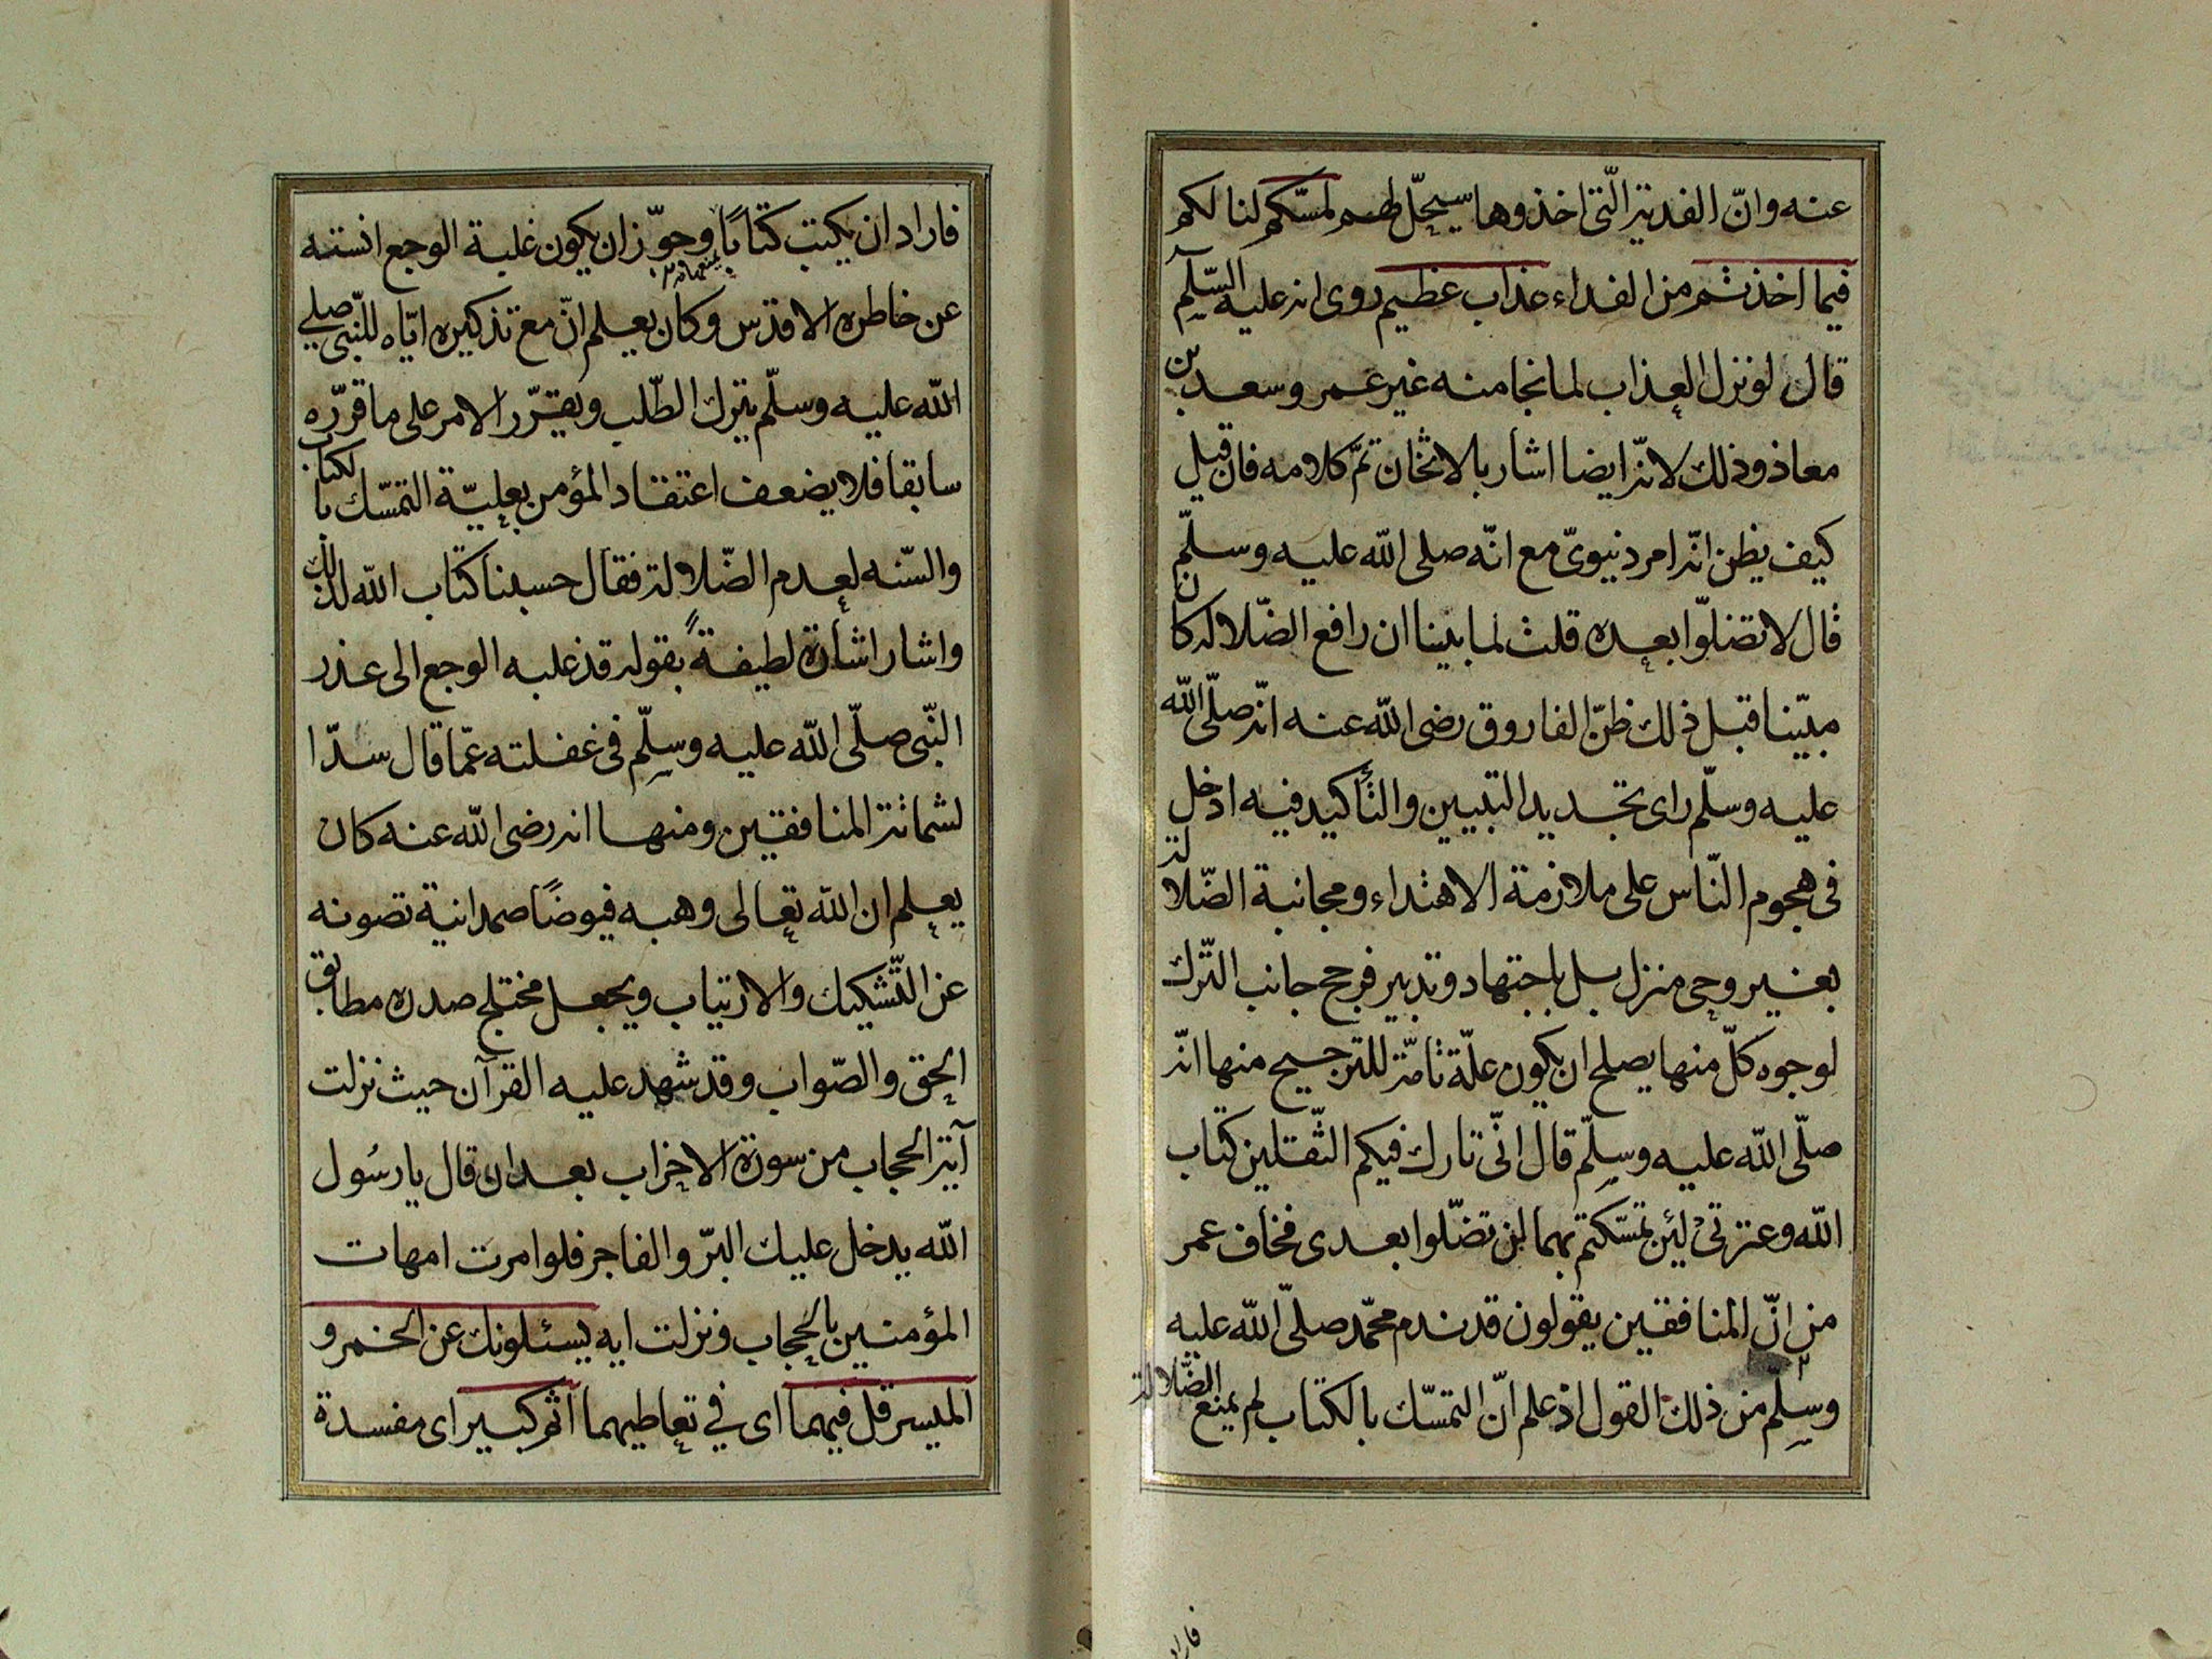 عنه وانّ الفدية الّتى اخذوها سيحلّ لهم لمسّكم لنا لكم
فيما اخذتم من الفداء عذاب عظيم روى انه عليه السّلم
قال لو نزل العذاب لما نجا منه غير عمر وسعد بن
معاذ وذلك لانّه ايضا اشار بالاثخان تمّ كلامه فان قيل
كيف يظن انّه امر دنيوىّ مع انّه صلى الله عليه وسلّم
قال لا تضلّوا بعده قلت لما بينا ان رافع الضّلاله كان
مبيّنا قبل ذلك ظنّ الفاروق رضى الله عنه انّه صلّى الله
عليه وسلّم راى تجديد التبيين والتأكيد فيه ادخل
فى هجوم النّاس على ملازمة الاهتداء ومجانبة الضّلالة
بغير وحى منزل بل باجتهاد وتدبير فرجح جانب التّرك
لوجوه كلّ منها يصلح ان يكون علّة تامّة للترجيح منها انّه
صلّى الله عليه وسلّم قال انّى تارك فيكم الثّقلين كتاب
الله وعترتى لئن تمسّكتم بهما لن تضلّوا بعدى فخاف عمر
من انّ المنافقين يقولون قد ندم محمّد صلّى الله عليه
وسلّم من ذلك القول اذ علم انّ التمسّك بالكتاب لم يمنع الضّلالة
فاراد
فاراد ان يكتب كتابًا وجوّز ان يكون غلبة الوجع انسته
عن خاطره الاقدس وكان يعلم انّ مع تذكيره ايّاه للنّبى صلى
الله عليه وسلّم يترك الطّلب ويقرّر الامر على ما قرّره
سابقا فلا يضعف اعتقاد المؤمن بعليّة التمسّك بالكتاب
والسّنه لعدم الضّلالة فقال حسبنا كتاب الله لذلك
واشار اشارة لطيفةً بقوله قد غلبه الوجع الى عذر
النّبى صلّى الله عليه وسلّم فى غفلته عمّا قال سدّا
لشماتة المنافقين ومنها انه رضى الله عنه كان
يعلم ان الله تعالى وهبه فيوضًا صمدانية تصونه
عن التّشكيك والارتياب ويجعل مختلج صدره مطابق
الحق والصّواب وقد شهد عليه القرآن حيث نزلت
آية الحجاب من سورة الاحزاب بعد ان قال يا رسُول
الله يدخل عليك البرّ والفاجر فلو امرت امهات
المؤمنين بالحجاب ونزلت ايه يسئلونك عن الخمر و
الميسر قل فيهما اى في تعاطيهما اثم كبير اى مفسدة